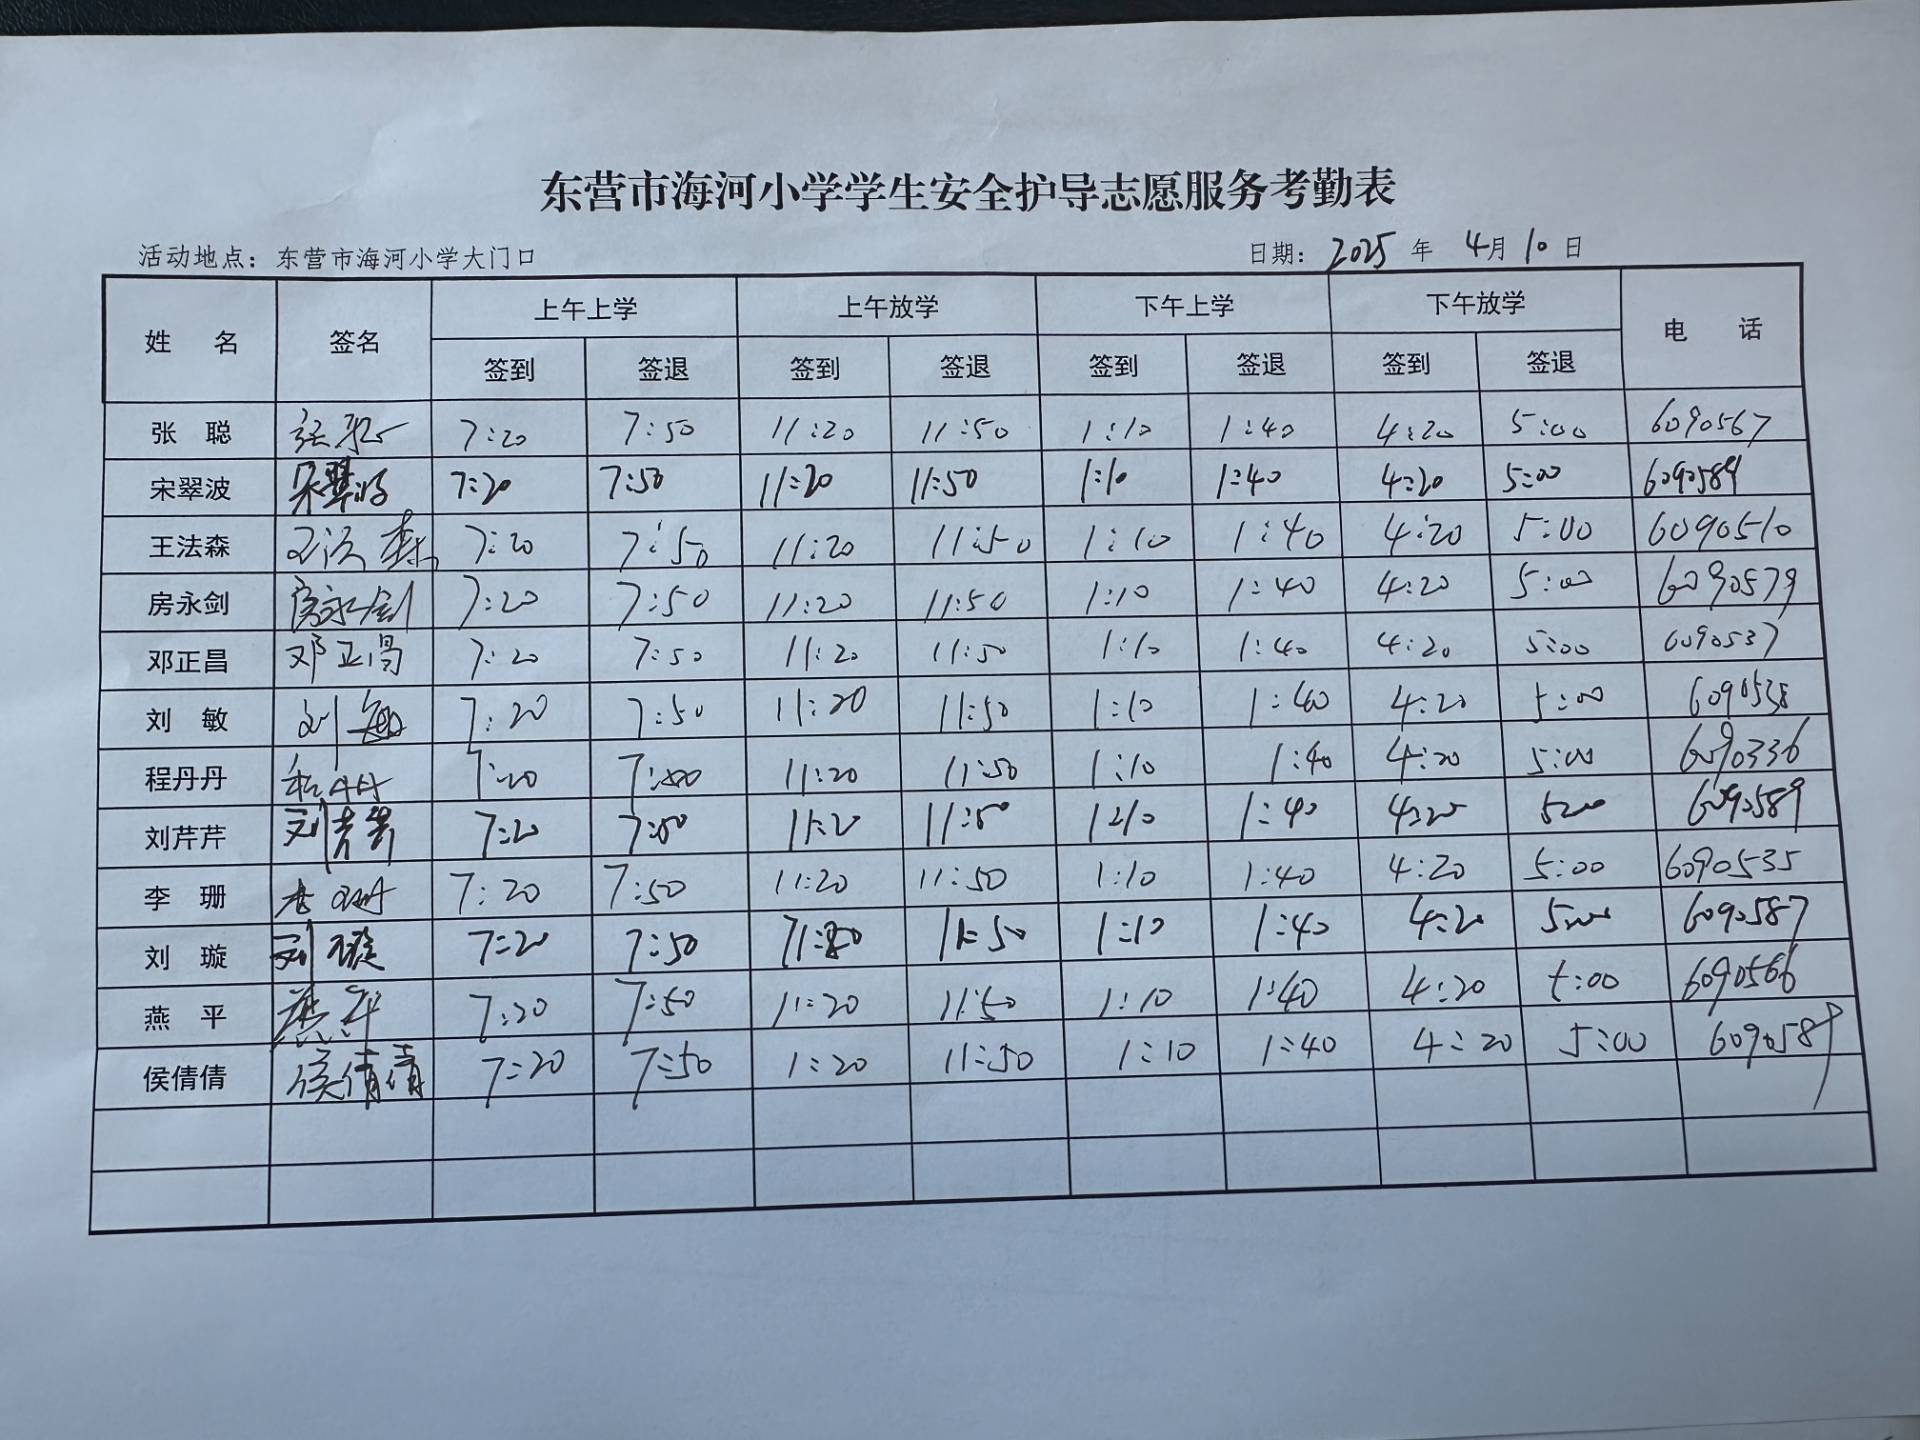 东营市海河小学学生安全护导志愿服务考勤表
活动地点：东营市海河小学大门口 日期：2025年 4月10日
姓 名 签名 上午上学 上午放学 下午上学 下午放学 电 话
签到 签退 签到 签退 签到 签退 签到 签退
张 聪 张聪 7:20 7:50 11:20 11:50 1:10 1:40 4:20 5:00 6090567
宋翠波 宋翠波 7:20 7:50 11:20 11:50 1:10 1:40 4:20 5:00 6090589
王法森 王法森 7:20 7:50 11:20 11:50 1:10 1:40 4:20 5:00 6090510
房永剑 房永剑 7:20 7:50 11:20 11:50 1:10 1:40 4:20 5:00 6090579
邓正昌 邓正昌 7:20 7:50 11:20 11:50 1:10 1:40 4:20 5:00 6090537
刘 敏 刘敏 7:20 7:50 11:20 11:50 1:10 1:40 4:20 5:00 6090538
程丹丹 程丹丹 7:20 11:20 11:50 1:10 1:40 4:20 5:00 6090336
刘芹芹 刘芹芹 7:20 7:50 11:20 11:50 1:10 1:40 4:20 5:00 6090589
李 珊 李珊 7:20 7:50 11:20 11:50 1:10 1:40 4:20 5:00 6090535
刘 璇 刘璇 7:20 7:50 11:50 1:10 1:40 4:20 5:00 6090587
燕 平 燕平 7:20 7:50 11:20 11:50 1:10 1:40 4:20 5:00 6090566
侯倩倩 侯倩倩 7:20 7:50 1:20 11:50 1:10 1:40 4:20 5:00 6090589